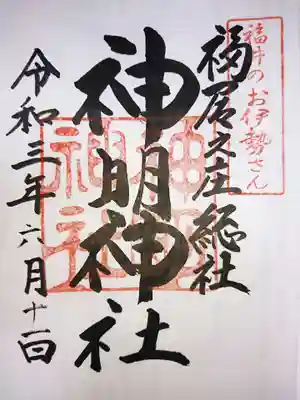 福井のお伊勢さん
福居之庄総社
神明神社
神明神社
令和三年六月十一日